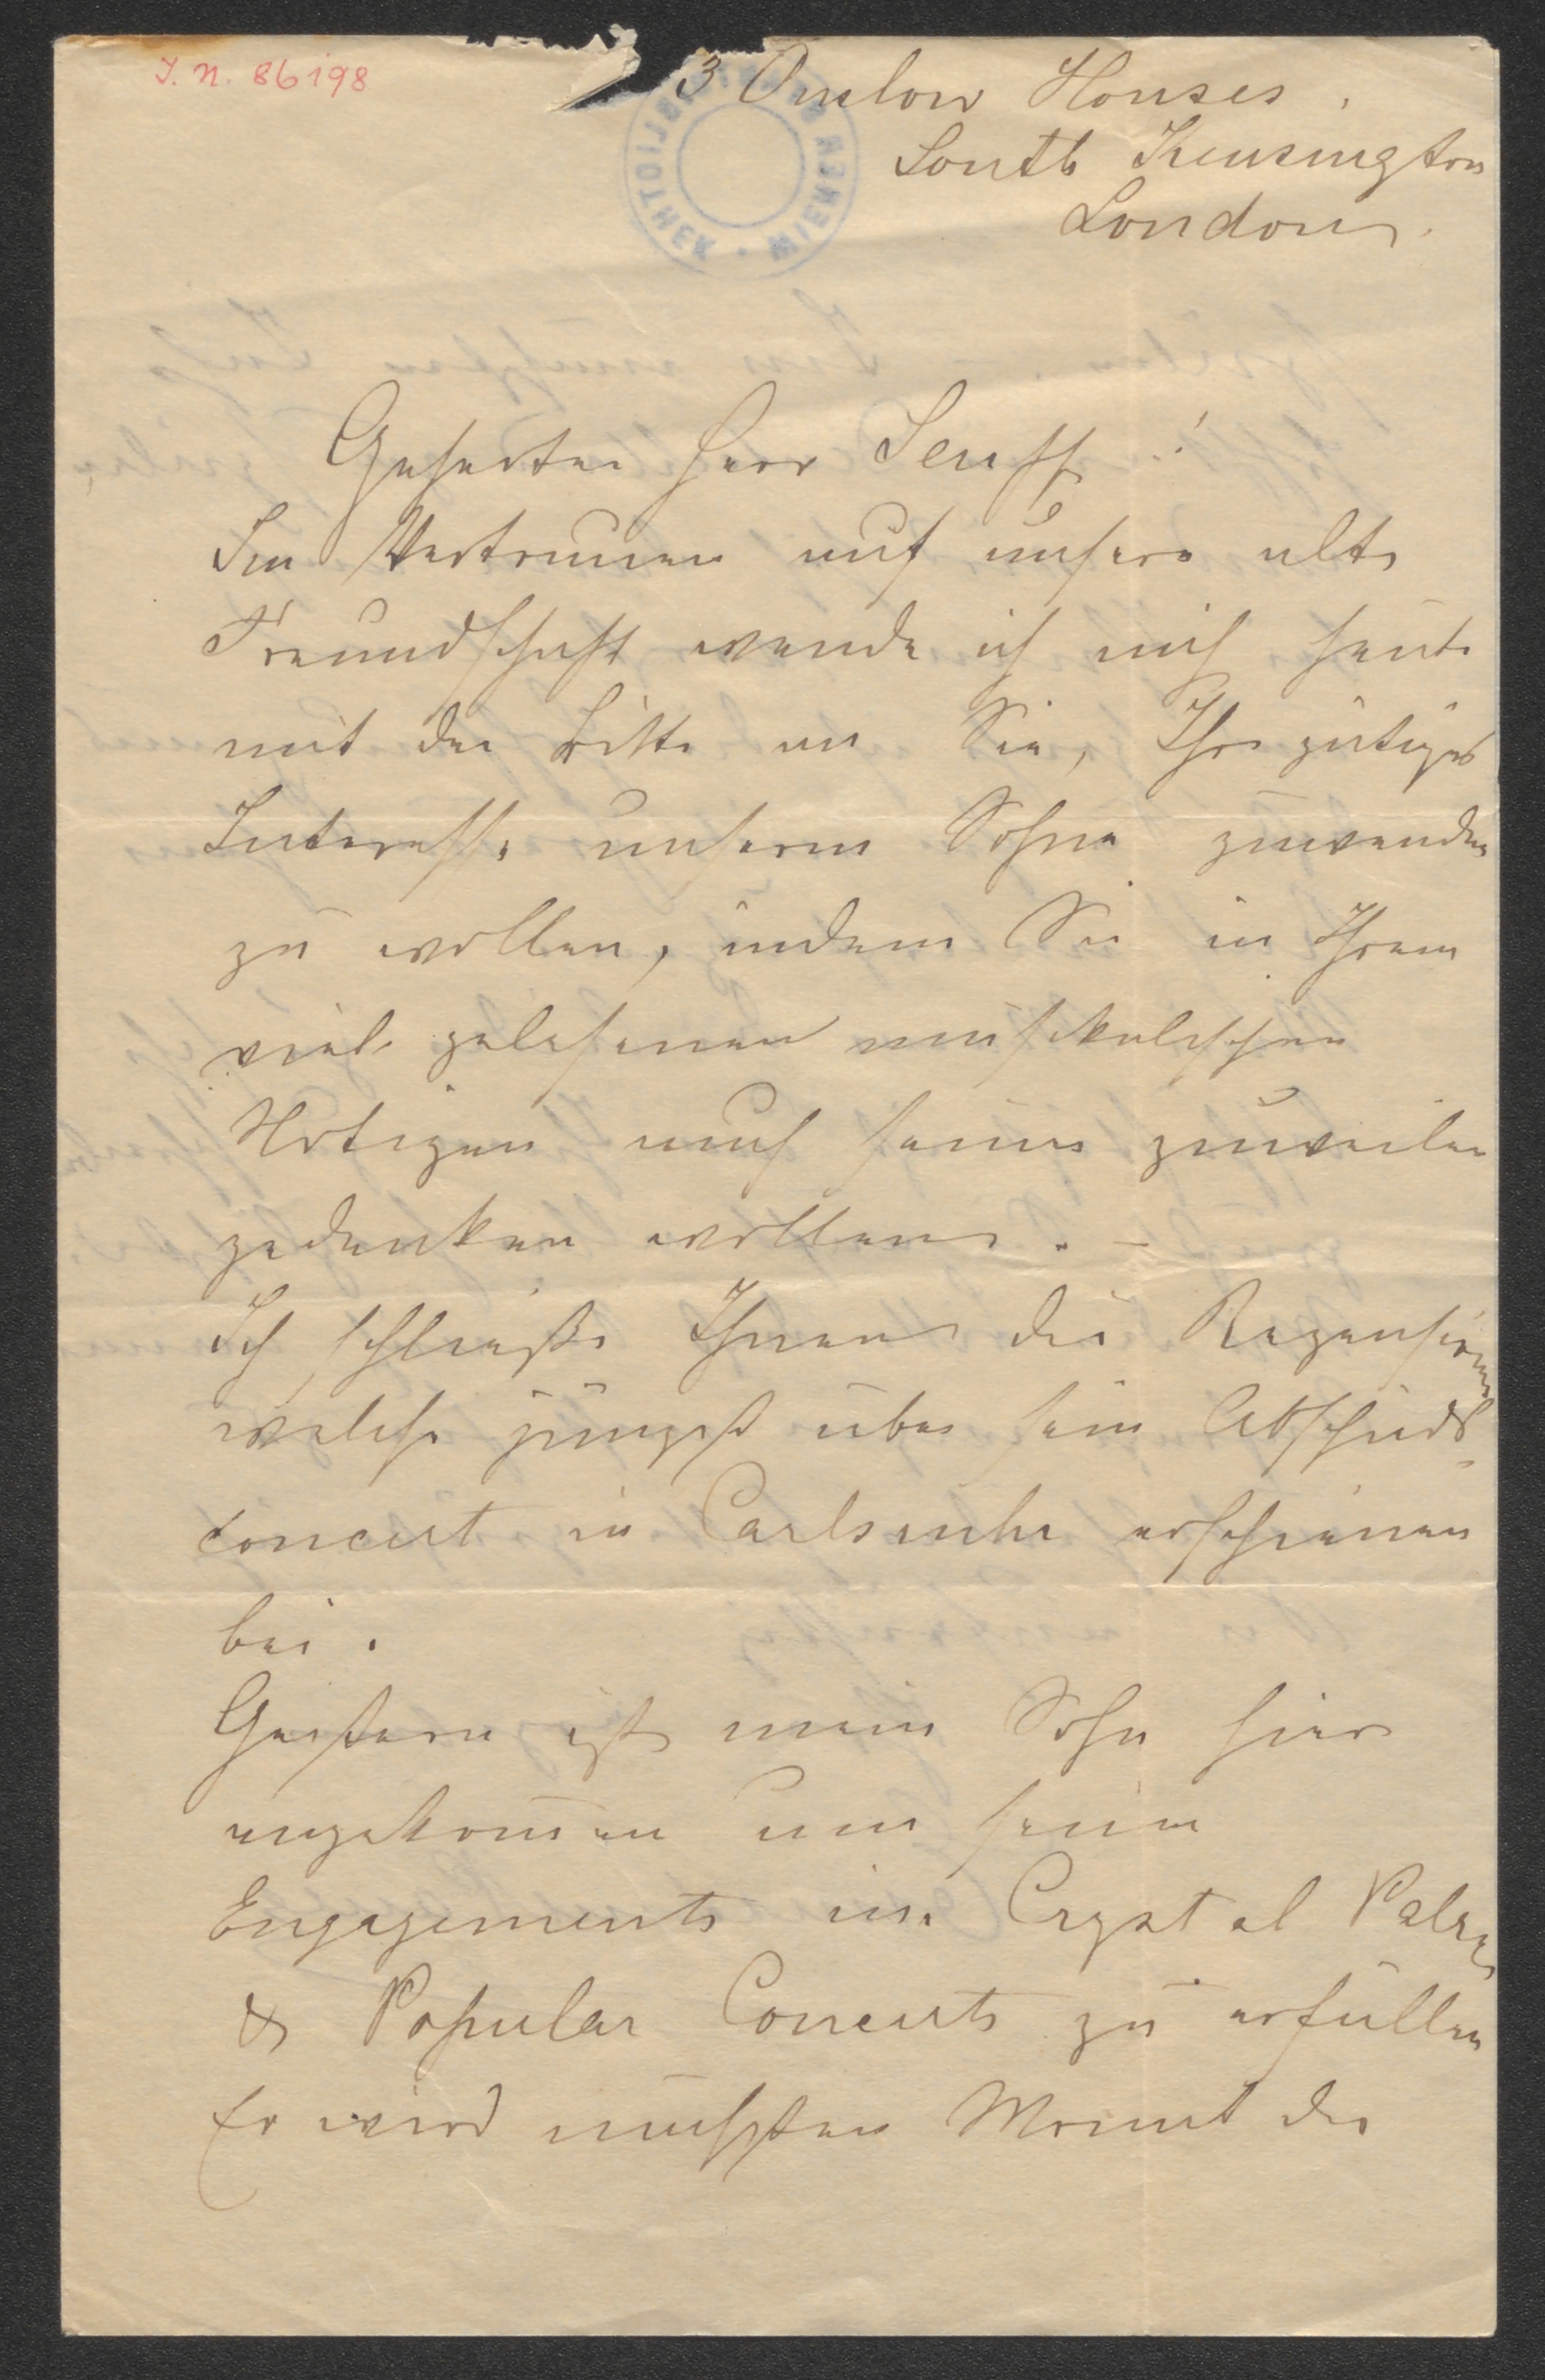 J. N. 86198
3 Onslow Houses,
South Kensington
London.
Geehrter Herr Senff!
Im Vertrauen auf unsere alte
Freundschaft wende ich mich heute
mit der Bitte an Sie, Ihr gütiges
Interesse unserm Sohne zuwenden
zu wollen, indem Sie in Ihrem
viel gelesenen musikalischen
Notizen auch seiner zuweilen
gedenken wollen. –
Ich schließe Ihnen die Rezensionen
welche jüngst über sein Abschieds-
concert in Carlsruhe erschienen
bei.
Gestern ist mein Sohn hier
angekom̄en um seine
Engagements im Crystal Palace
& Popular Concerts zu erfüllen
Er wird nächsten Monat die